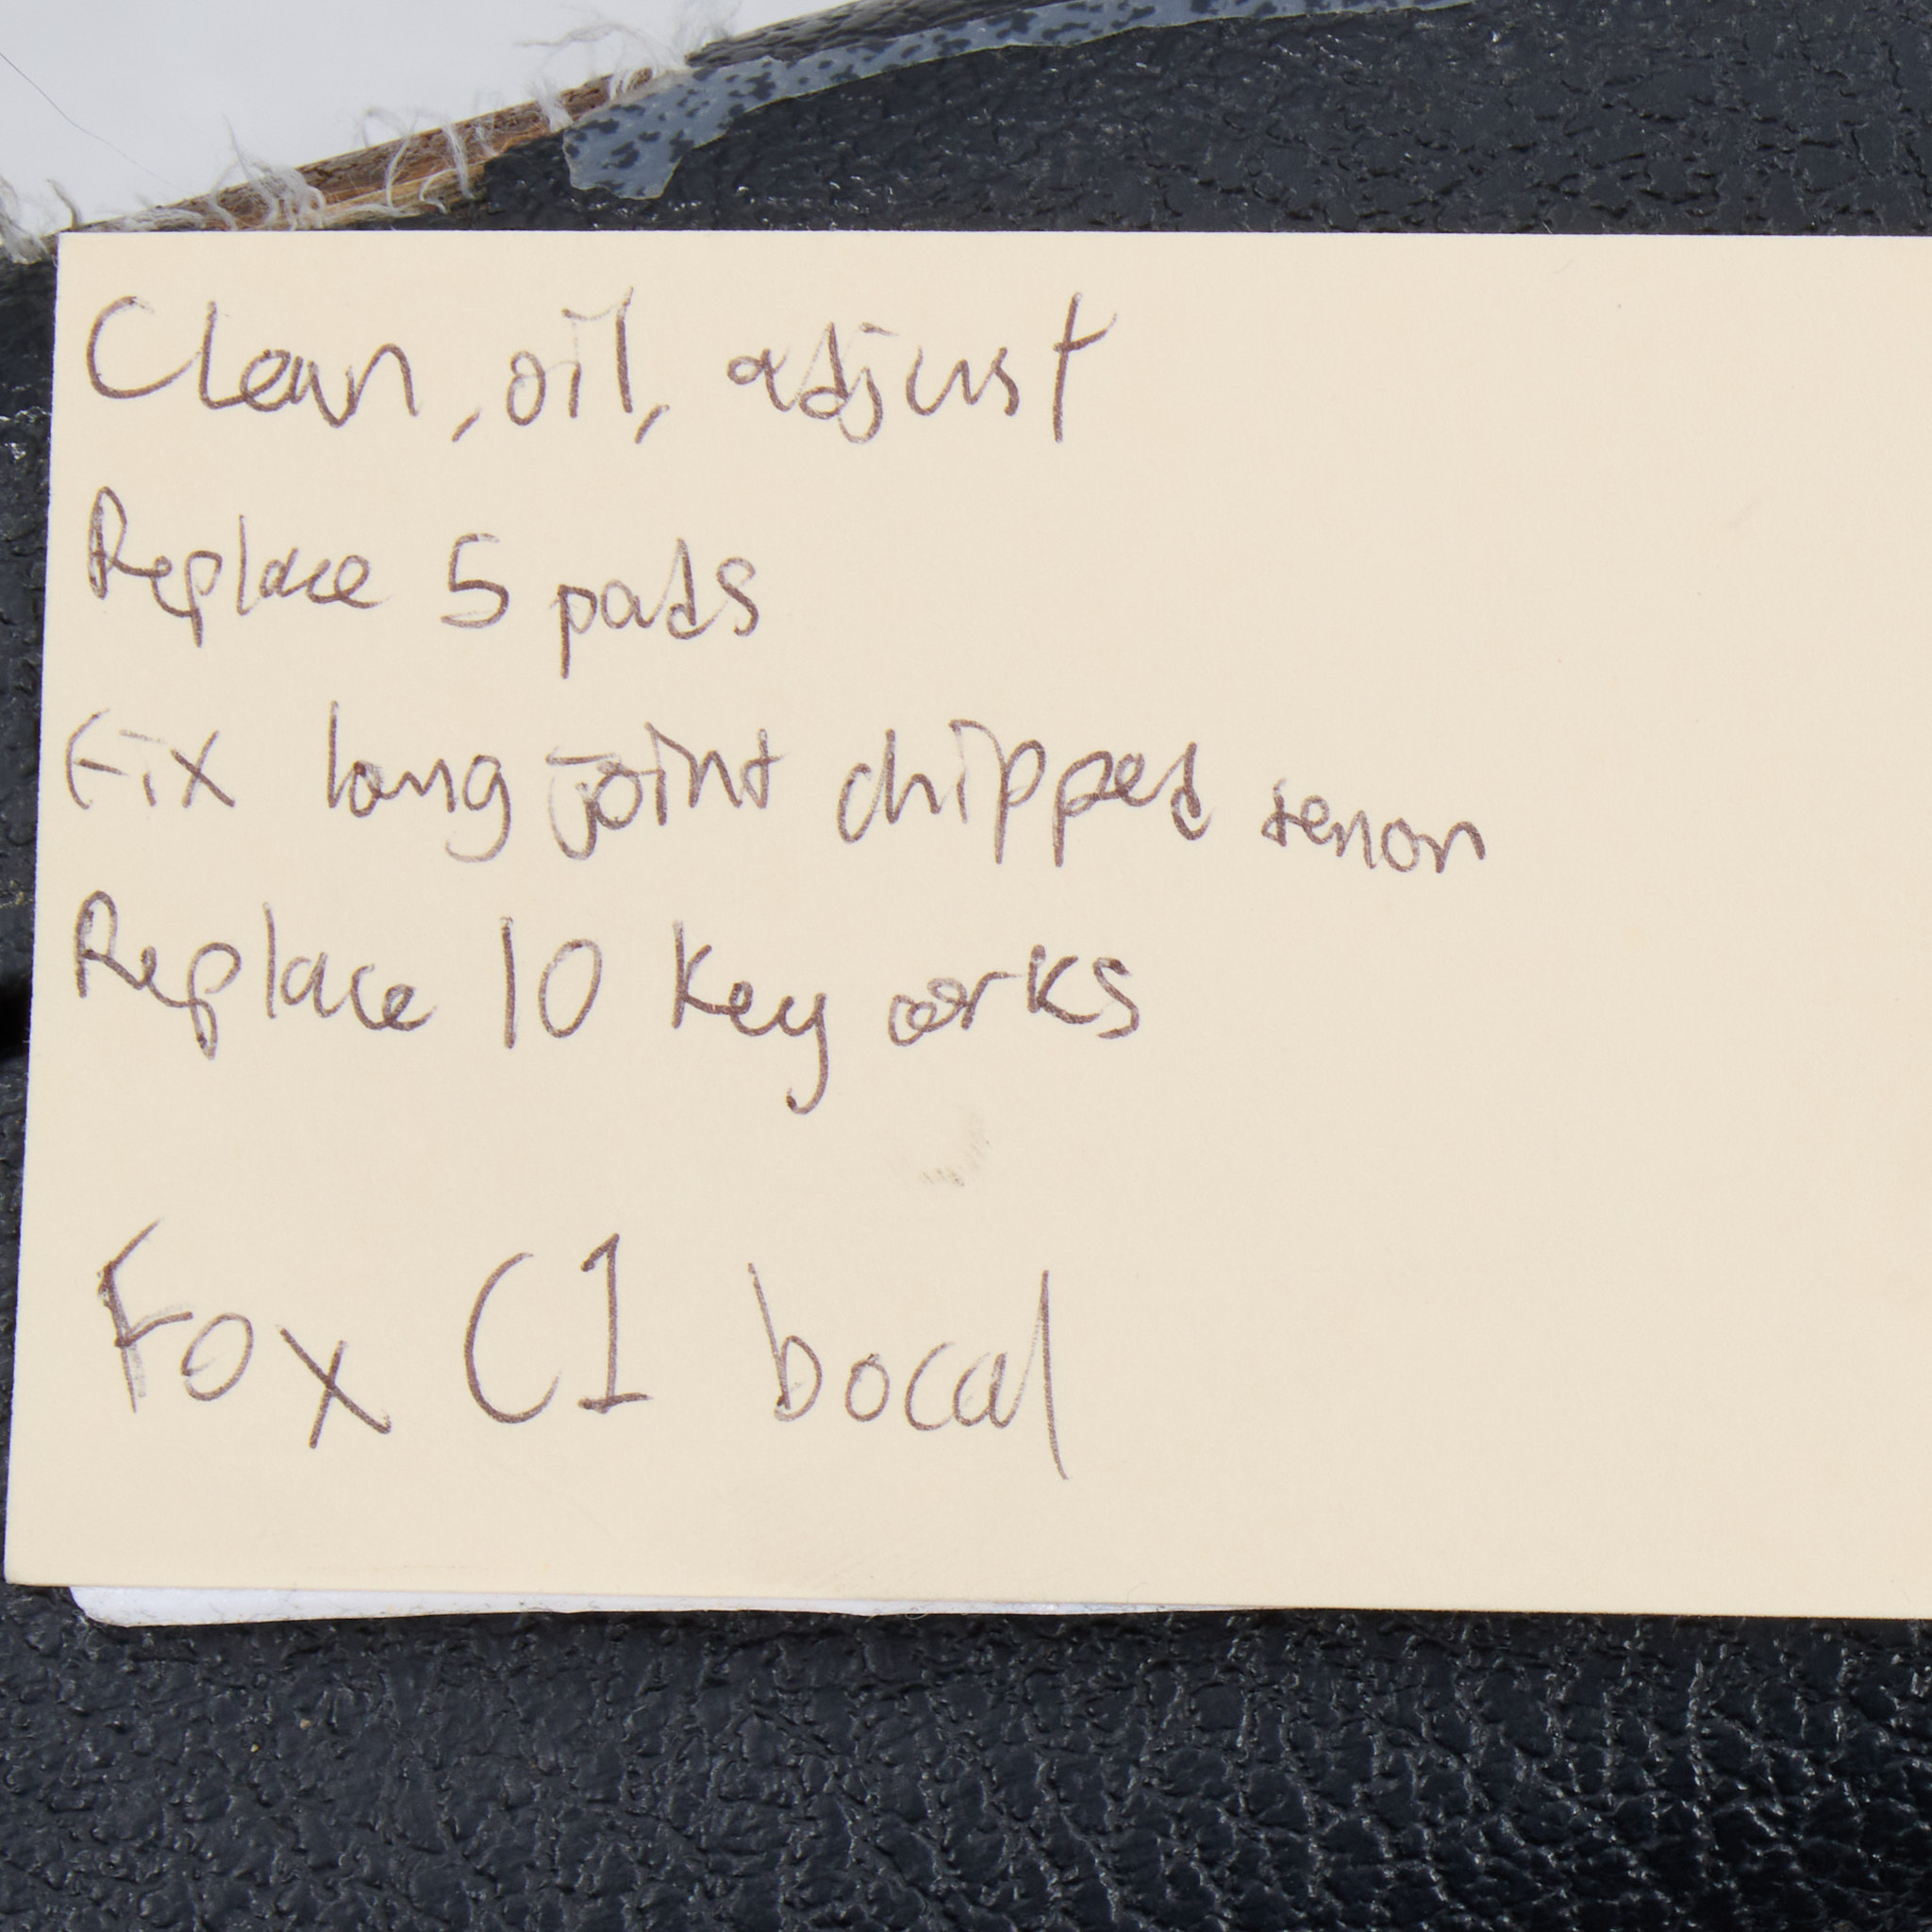 Clean, oil, adjust
Replace 5 pads
Fix long joint chipped tenon
Replace 10 key corks
Fox C1 bocal